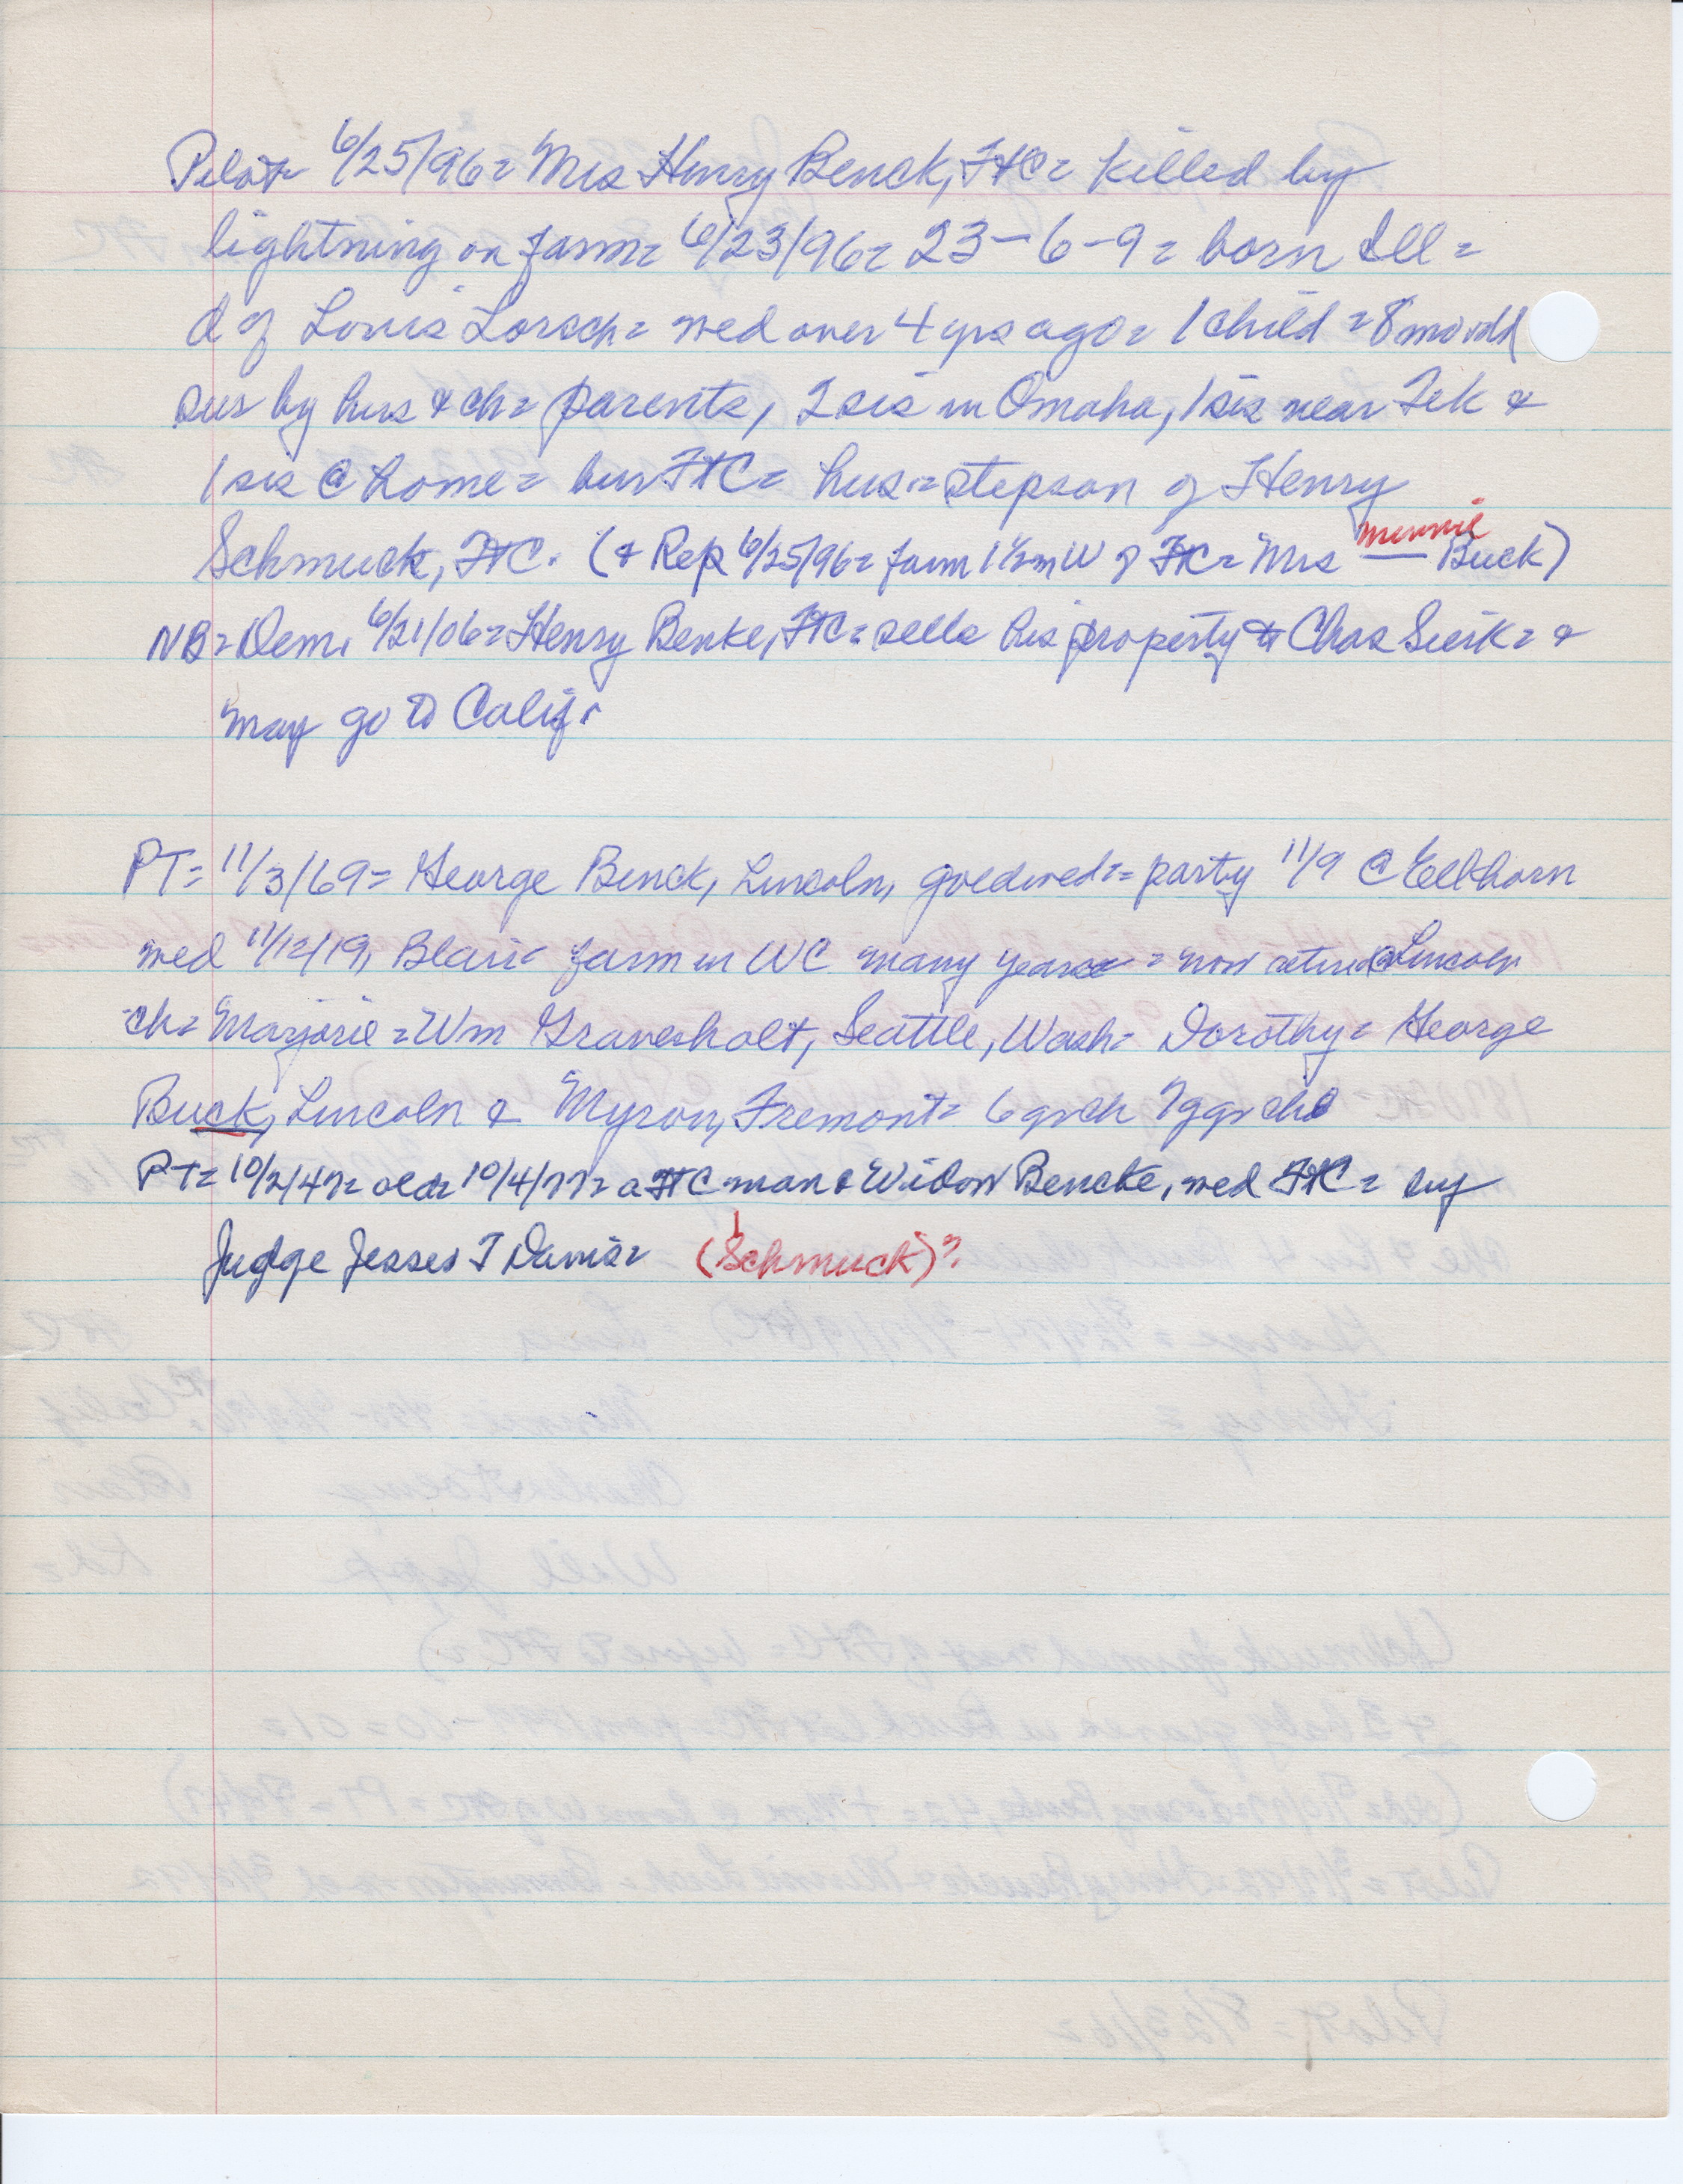 Pilot= 6/25/96= Mrs Henry Benck, FtC= killed by
lightning on farm= 6/23/96= 23-6-9= born Ill=
d of Louis Lorsch= wed over 4 yrs ago= 1 child=8 mo old
sur by hus & ch= parents, 2 sis in Omaha, 1 sis near Tek &
1 sis @ home= bur FtC= hus= stepson of Henry
Schmuck, FtC. (& Rep 6/25/96= farm 1½ m W of FtC= Mrs — Buck)
minnie
NB= Dem. 6/21/06= Henry Benke, FtC= sells his property to Chas Sierk= &
may go to Calif.
PT= 11/3/69= George Benck, Lincoln, goldwed= party 11/9 @ Elkhorn
wed 11/12/19, Blair= farm in WC many years= now retired @ Lincoln
ch= Marjorie=Wm Graverholt, Seattle, Wash= Dorothy= George
Buck, Lincoln & Myron, Fremont= 6 grch 7 ggr ch
PT= 10/2/47= old= 10/4/77= a FtC man & Widow Bencke, wed FtC= by
Judge Jesses T Davis= (Schmuck)?